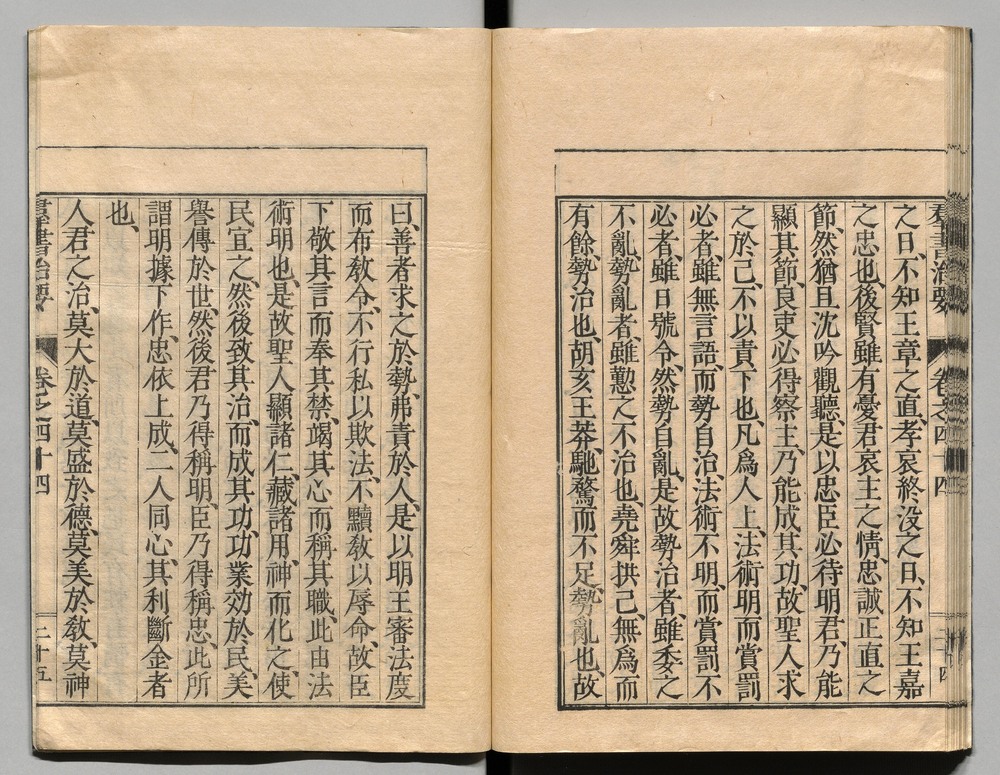 群書治要 卷之四十四 二十四
之日、不知王章之直、孝哀終没之日、不知王嘉
之忠也、後賢雖有憂君哀主之情、忠誠正直之
節、然猶且沈吟觀聽、是以忠臣必待明君、乃能
顯其節、良吏必得察主、乃能成其功、故聖人求
之於己、不以責下也、凡爲人上、法術明而賞罰
必者、雖無言語、而勢自治、法術不明、而賞罰不
必者、雖日號令、然勢自亂、是故勢治者、雖委之
不亂、勢亂者、雖懃之不治也、堯舜拱己、無爲而
有餘、勢治也、胡亥王莽、馳騖而不足、勢亂也、故
曰、善者求之於勢、弗責於人、是以明王審法度
而布敎令、不行私以欺法、不黷敎以辱命、故臣
下敬其言而奉其禁、竭其心而稱其職、此由法
術明也、是故聖人顯諸仁、藏諸用、神而化之、使
民宜之、然後致其治、而成其功、功業効於民、美
譽傳於世、然後君乃得稱明、臣乃得稱忠、此所
謂明據下作、忠依上成、二人同心、其利斷金者
也、
人君之治、莫大於道、莫盛於德、莫美於敎、莫神
群書治要 卷之四十四 二十五